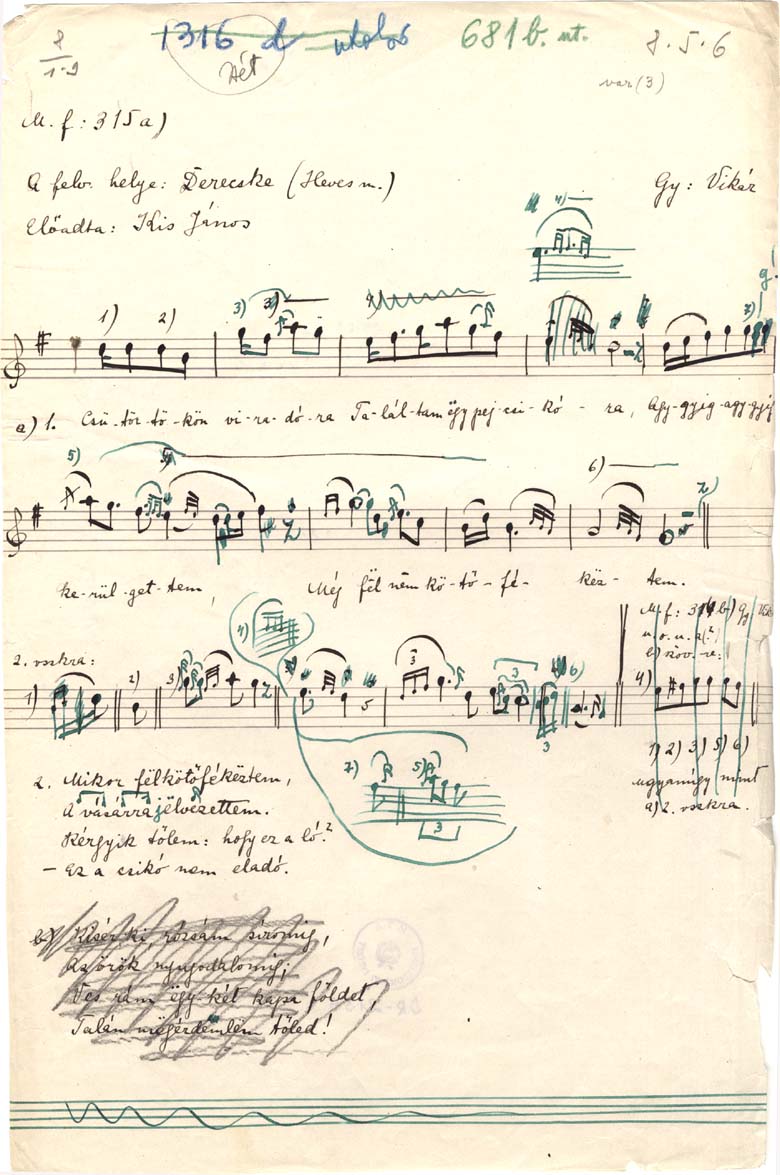 8
1-9
1316 d utolsó
681 b. nt.
8.5.6
Hét
var (3)
M. f: 315 a)
A felv. helye: Derecske (Heves m.)
Gy: Vikár
Előadta: Kis János
4)
g!
1) 2) 3) 3) 7)
a) 1. Csü-tör-tö-kön vi-ra-dó-ra Ta-lál-tam ëgy pej-csi-kó-ra, Agy-gyig-agy-gyig
5) 6) 7)
ke-rül-get-tem, Még fël nëm kö-tő-fé-këz-tem.
2. vszkra:
1) 2) 3) 4) 5 3 3 6) 3
M. f: 314 b) Gy: Vik
u. o. u. a (?)
b) szöv.-re:
4)
7) 5) 3
1) 2) 3) 5) 6)
ugyanúgy mint
a) 2. vszkra.
2. Mikor fëlkötőfékëztem,
A vásárra jélvezettem.
Kérgyik tőlem: hogy ez a ló?
- Ez a csikó nem eladó.
b) Kisér ki, rozsám síromig,
Az örök nyugodalomig;
Vës rám ëgy-két kapa földet
Talán mëgérdemlëm tőled!